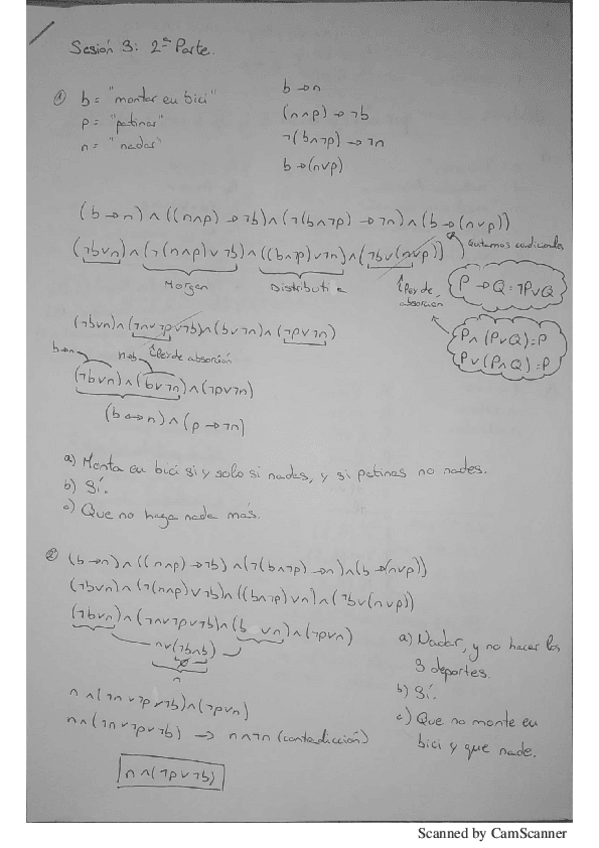 Sesión 3: 2ª Parte.
① b = "montar en bici"
p = "patinar"
n = "nadar"
b → n
(n∧p) → ¬b
¬(b∧¬p) → ¬n
b → (n∨p)
(b → n) ∧ ((n∧p) → ¬b) ∧ (¬(b∧¬p) → ¬n) ∧ (b → (n∨p))
Quitamos condicionales
(¬b∨n) ∧ (¬(n∧p) ∨ ¬b) ∧ ((b∧¬p) ∨ ¬n) ∧ (¬b∨(n∨p))
Morgan
Distributi
Ley de absorción
P → Q = ¬P∨Q
P∧(P∨Q) = P
P∨(P∧Q) = P
(¬b∨n) ∧ (¬n∨¬p∨¬b) ∧ (b∨¬n) ∧ (¬p∨¬n)
b→n
n→b
Ley de absorción
(¬b∨n) ∧ (b∨¬n) ∧ (¬p∨¬n)
(b ↔ n) ∧ (p → ¬n)
a) Monta en bici si y solo si nades, y si patinas no nades.
b) Sí.
c) Que no haga nada más.
② (b→n) ∧ ((n∧p) → ¬b) ∧ (¬(b∧¬p) → n) ∧ (b→(n∨p))
(¬b∨n) ∧ (¬(n∧p)∨¬b) ∧ ((b∧¬p) ∨n) ∧ (¬b∨(n∨p))
(¬b∨n) ∧ (¬n∨¬p∨¬b) ∧ (b ∨n) ∧ (¬p∨n)
n∨(¬b∧b)
n
n ∧ (¬n∨¬p∨¬b) ∧ (¬p∨n)
n ∧ (¬n∨¬p∨¬b) → n∧¬n (contradicción)
n ∧ (¬p∨¬b)
a) Nadar, y no hacer los
3 deportes.
b) Sí.
c) Que no monte en
bici y que nade.
Scanned by CamScanner